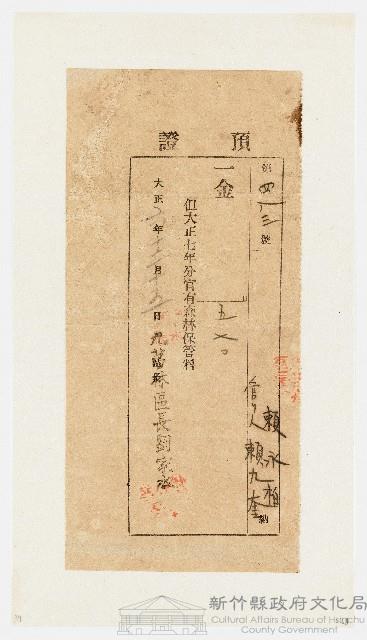 預證
第四一三號
賴永相
信人賴九奎納
一金
五
但大正七年分官有森林保管料
大正 年十二月十五日
區長劉家水
新竹縣政府文化局
Cultural Affairs Bureau of Hsinchu
County Government